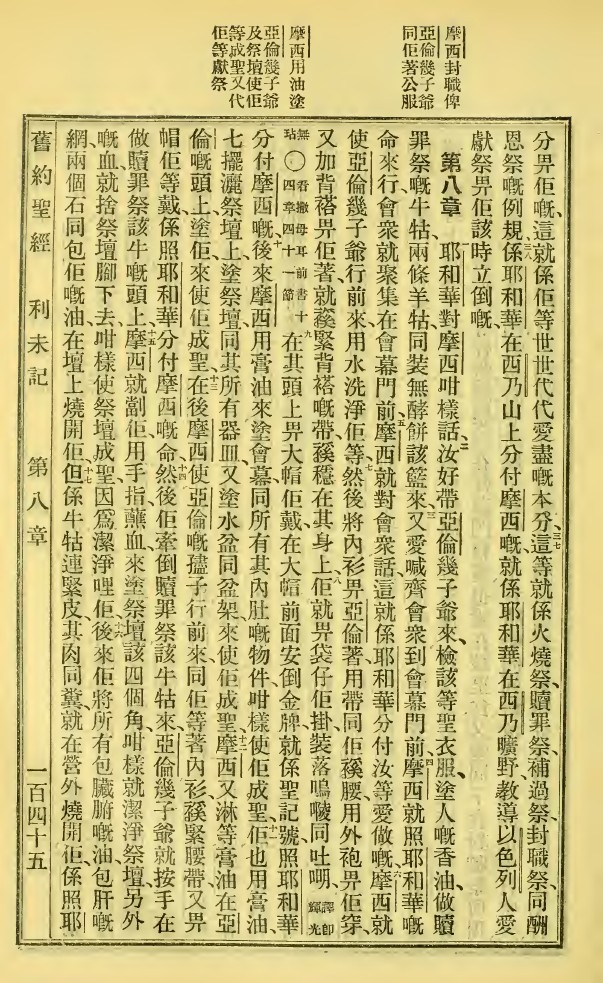 摩西封職俾
亞倫幾子爺
同佢著公服
摩西用油塗
亞倫幾子爺
及祭壇使佢
等成聖又代
佢等獻祭
分畀佢嘅、這就係佢等世世代代愛盡嘅本分、三七這等就係火燒祭、贖罪祭、補過祭、封職祭、同酬
恩祭嘅例規、三八係耶和華在西乃山上分付摩西嘅、就係耶和華在西乃曠野、教導以色列人愛
獻祭畀佢該時立倒嘅、
第八章 一耶和華對摩西咁樣話、二汝好帶亞倫幾子爺來、檢該等聖衣服、塗人嘅香油、做贖
罪祭嘅牛牯、兩條羊牯、同裝無酵餅該籃來、三又愛喊齊會眾到會幕門前、四摩西就照耶和華嘅
命來行、會眾就聚集在會幕門前、五摩西就對會眾話、這就係耶和華分付汝等愛做嘅、六摩西就
使亞倫幾子爺行前來、用水洗淨佢等、七然後將內衫畀亞倫著、用帶同佢䌈腰、用外袍畀佢穿、
又加背褡畀佢著、就䌈緊背褡嘅帶、䌈穩在其身上、八佢就畀袋仔佢掛、裝落嗚㖫同吐唎、譯即輝光
無玷〇看撒母耳前書十四章四十一節 九在其頭上畀大帽佢戴、在大帽前面安倒金牌、就係聖記號、照耶和華
分付摩西嘅、十後來摩西用膏油來塗會幕、同所有其內肚嘅物件、咁樣使佢成聖、十一佢也用膏油、
七擺灑祭壇上、塗祭壇、同其所有器皿、又塗水盆同盆架、來使佢成聖、十二摩西又淋等膏油在亞
倫嘅頭上、塗佢、來使佢成聖、十三在後摩西使亞倫嘅孻子行前來、同佢等著內衫、䌈緊腰帶、又畀
帽佢等戴、係照耶和華分付摩西嘅命、十四然後佢牽倒贖罪祭該牛牯來、亞倫幾子爺就按手在
做贖罪祭該牛嘅頭上、十五摩西就劏佢、用手指蘸血、來塗祭壇該四個角、咁樣就潔淨祭壇、另外
嘅血、就捨祭壇腳下去、咁樣使祭壇成聖、因爲潔淨哩佢、十六後來佢將所有包臟腑嘅油、包肝嘅
網、兩個石、同包佢嘅油、在壇上燒開佢、十七但係牛牯連緊皮、其肉同糞、就在營外燒開佢、係照耶
舊約聖經 利未記 第八章 一百四十五